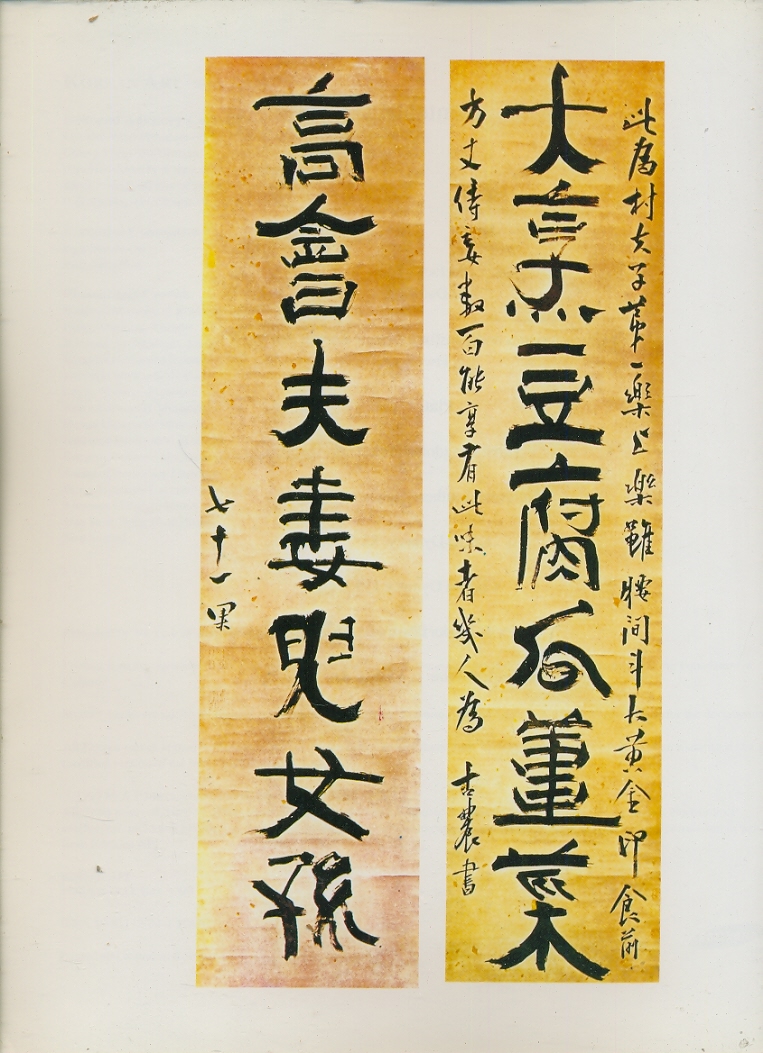 此為村夫子苐一樂上樂雖腰间斗大黃金印食前
大烹豆腐瓜薑菜
方丈侍妾數百能享有此味者幾人為 古農書
高會夫妻兒女孫
七十一果